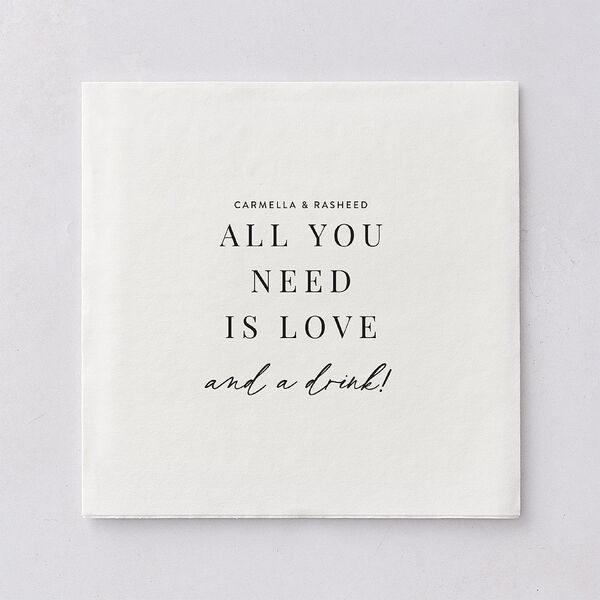 CARMELLA & RASHEED
ALL YOU
NEED
IS LOVE
and a drink!